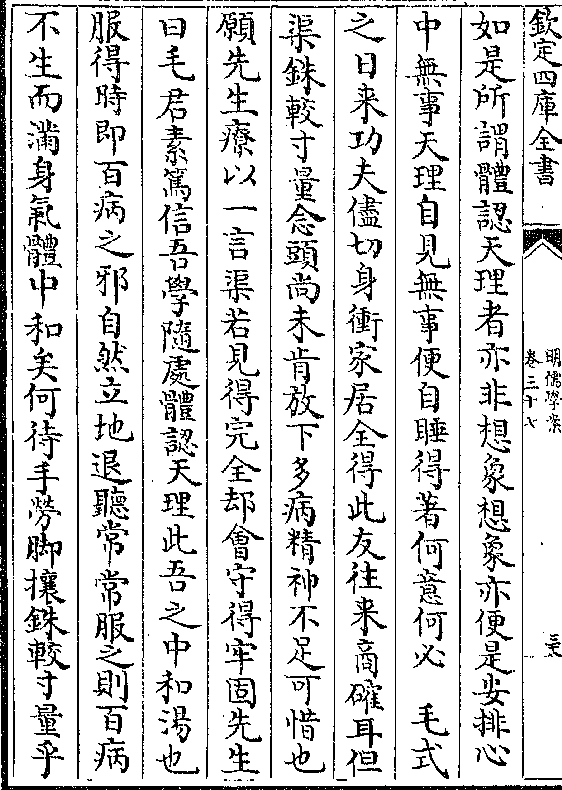 欽定四庫全書
明儒學案
卷三十七
如是所謂體認天理者亦非想象想象亦便是安排心
中無事天理自見無事便自睡得著何意何必　毛式
之日来功夫儘切身衝家居全得此友往来商確耳但
渠銖較寸量念頭尚未肯放下多病精神不足可惜也
願先生療以一言渠若見得完全却會守得牢固先生
曰毛君素篤信吾學隨處體認天理此吾之中和湯也
服得時即百病之邪自然立地退聽常常服之則百病
不生而滿身氣體中和矣何待手勞脚攘銖較寸量乎